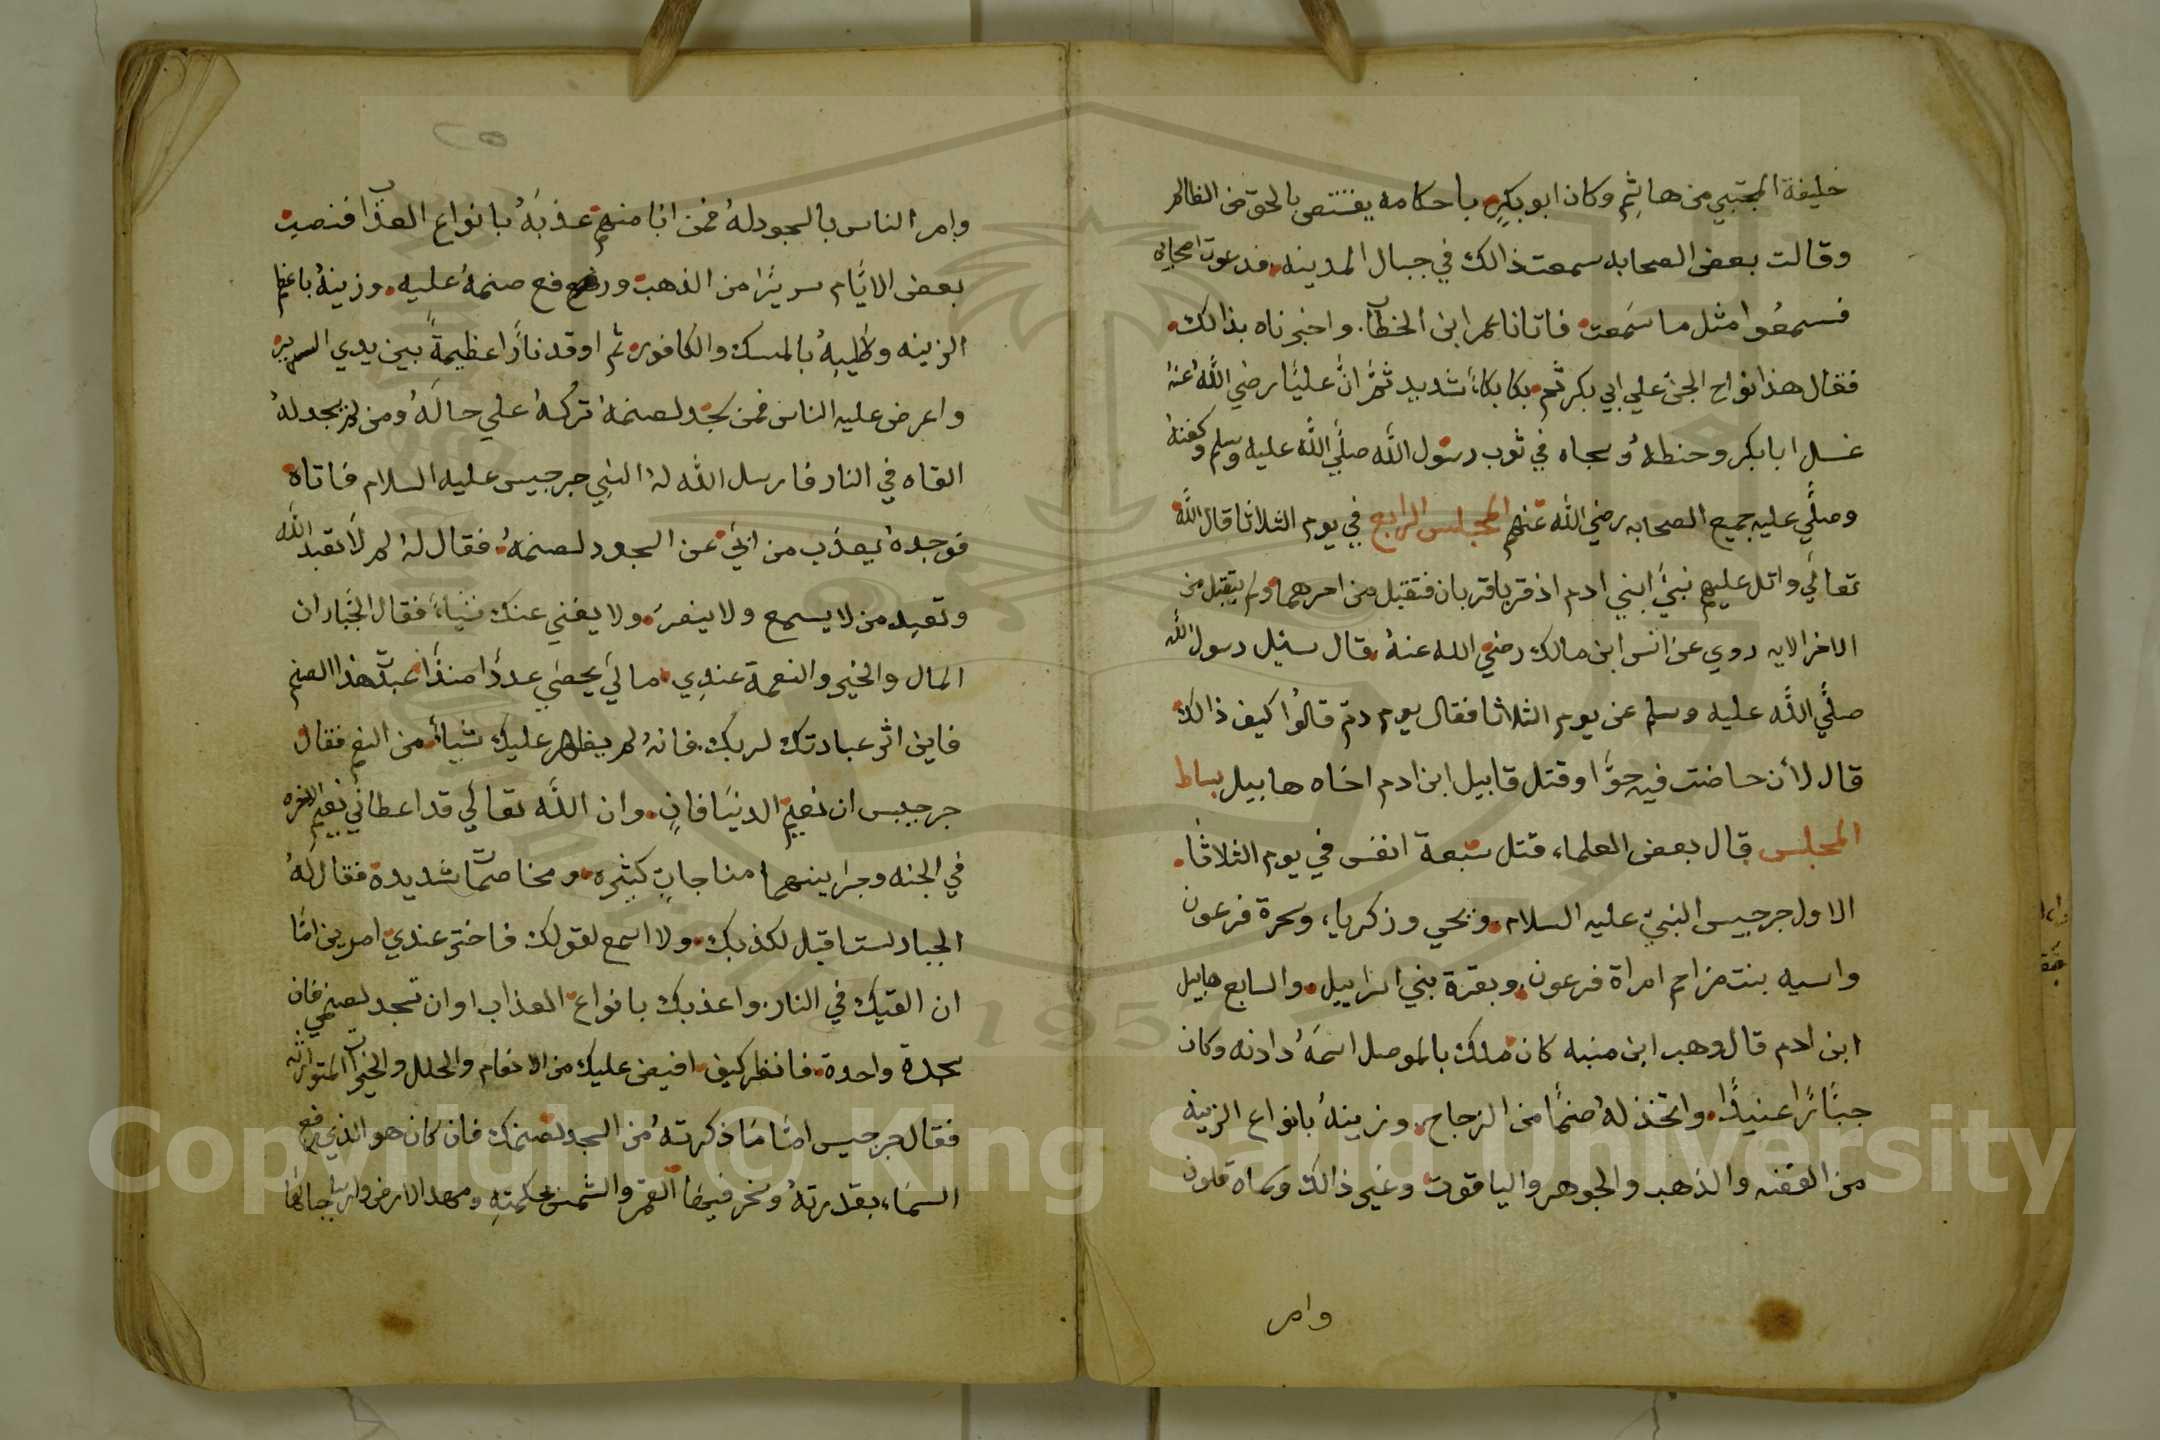 خليفة المجتبي من هاشم وكان ابو بكر باحكامه يقتص بالحق من الظالم
وقالت بعض الصحابه سمعت ذالك في جبال المدينه فدعوت اصحابي
فسمعوا مثل ما سمعت فاتانا عمر ابن الخطاب واخبرناه بذالك
فقال هذا نواح الجن علي ابي بكر ثم بكا بكاء شديد ثم ان عليا رضي الله عنه
غسل ابا بكر وحنطه وسجاه في ثوب رسول الله صلي الله عليه وسلم وكفنه
وصلي عليه جميع الصحابه رضي الله عنهم المجلس الرابع في يوم الثلاثا قال الله
تعالي واتل عليهم نبئ ابني ادم اذ قربا قربان فتقبل من احدهما ولم يتقبل من
الاخر الايه روي عن انس ابن مالك رضي الله عنه قال سئل رسول الله
صلي الله عليه وسلم عن يوم الثلاثا فقال يوم دم قالوا كيف ذالك
قال لأن حاضت فيه حوا وقتل قابيل ابن ادم اخاه هابيل بساط
المجلس قال بعض العلماء قتل سبعة انفس في يوم الثلاثا
الاول جرجيس النبي عليه السلام ويحي وذكرياء وسحرة فرعون
واسيه بنت مزاحم امراة فرعون وبقرة بني اسراييل والسابع هابيل
ابن ادم قال وهب ابن منبه كان ملك بالموصل اسمه دادنه وكان
جبارا عنيدا واتخذ له صنما من الزجاج وزينه بانواع الزينه
من الفضه والذهب والجوهر والياقوت وغير ذالك وسماه قلون
وامر
٢٥
وامر الناس بالسجود له فمن ابا منهم عذبه بانواع العذاب فنصبت
بعض الايام سريرا من الذهب ورفع صنمه عليه وزينه باعظم
الزينه وطيبه بالمسك والكافور ثم اوقد نارا عظيمة بين يدي السرير
واعرض عليه الناس فمن سجد لصنمه تركه علي حاله ومن لم يسجد له
القاه في النار فارسل الله له النبي جرجيس عليه السلام فاتاه
فوجده يعذب من ابي عن السجود لصنمه فقال له لم لا تعبد الله
وتعبد من لا يسمع ولا ينصر ولا يغني عنك شياء فقال الجبار ان
المال والخير والنعمة عندي مالي يحصي عددا منذ اعبد هذا الصنم
فاين اثر عبادتك لربك فانه لم يظهر عليك شياء من النعم فقال
جرجيس ان نعيم الدنيا فان وان الله تعالي قد اعطاني نعيم الاخره
في الجنه وجرا بينهما مناجات كثيره ومخاصمات شديدة فقال له
الجبار لست اقبل لكذبك ولا اسمع لقولك فاختر عندي امرين اما
ان القيك في النار واعذبك بانواع العذاب او ان تسجد لصنمي فان
سجدة واحدة فانظر كيف افيض عليك من الانعام والحلل والخيرات المتواتره
فقال جرجيس اما ما ذكرته من السجد لصنمك فان كان هو الذي رفع
السماء بقدرته وسخر فيها القمر والشمس بحكمته ومهد الارض وارسا جبالها
Copyright © King Saud University
1957